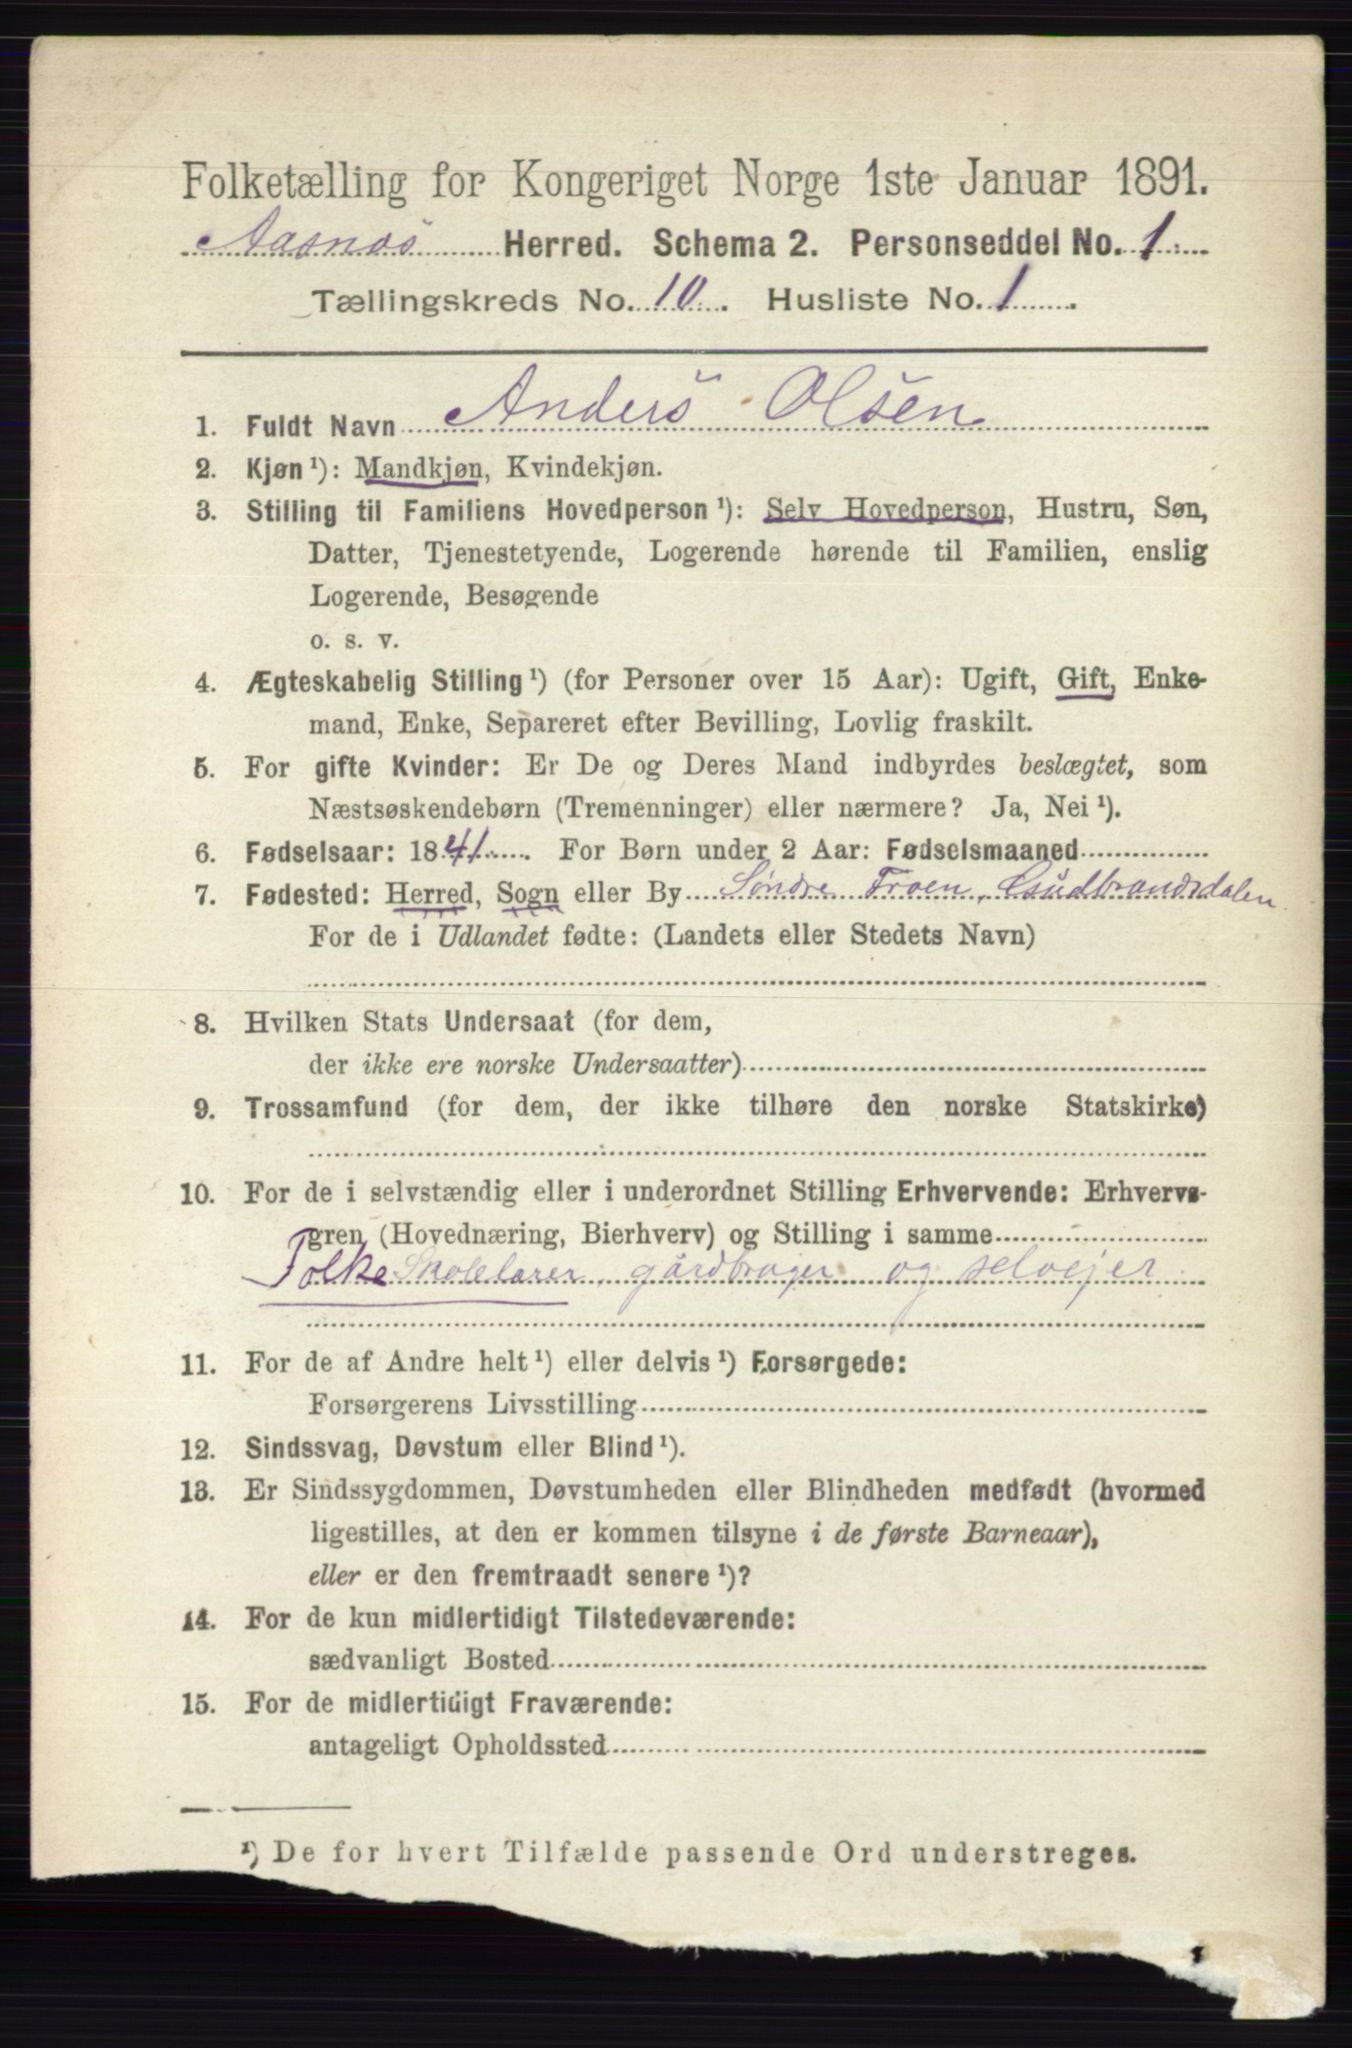 Folketælling for Kongeriget Norge 1ste Januar 1891.
Aasnes Herred. Schema 2. Personseddel No. 1.
Tællingskreds No. 10. Husliste No. 1.
1. Fuldt Navn Anders Olsen
2. Kjøn ¹): Mandkjøn, Kvindekjøn.
3. Stilling til Familiens Hovedperson ¹): Selv Hovedperson, Hustru, Søn,
Datter, Tjenestetyende, Logerende hørende til Familien, enslig
Logerende, Besøgende
o. s. v.
4. Ægteskabelig Stilling ¹) (for Personer over 15 Aar): Ugift, Gift, Enke-
mand, Enke, Separeret efter Bevilling, Lovlig fraskilt.
5. For gifte Kvinder: Er De og Deres Mand indbyrdes beslægtet, som
Næstsøskendebørn (Tremenninger) eller nærmere? Ja, Nei ¹).
6. Fødselsaar: 1841. For Børn under 2 Aar: Fødselsmaaned
7. Fødested: Herred, Sogn eller By Søndre Froen, Gudbrandsdalen
For de i Udlandet fødte: (Landets eller Stedets Navn)
8. Hvilken Stats Undersaat (for dem,
der ikke ere norske Undersaatter)
9. Trossamfund (for dem, der ikke tilhøre den norske Statskirke)
10. For de i selvstændig eller i underordnet Stilling Erhvervende: Erhvervs-
gren (Hovednæring, Bierhverv) og Stilling i samme
Folke Skolelærer, gårdbruger og selvejer.
11. For de af Andre helt ¹) eller delvis ¹) Forsørgede:
Forsørgerens Livsstilling
12. Sindssvag, Døvstum eller Blind ¹).
13. Er Sindssygdommen, Døvstumheden eller Blindheden medfødt (hvormed
ligestilles, at den er kommen tilsyne i de første Barneaar),
eller er den fremtraadt senere ¹)?
14. For de kun midlertidigt Tilstedeværende:
sædvanligt Bosted
15. For de midlertidigt Fraværende:
antageligt Opholdssted
¹) De for hvert Tilfælde passende Ord understreges.